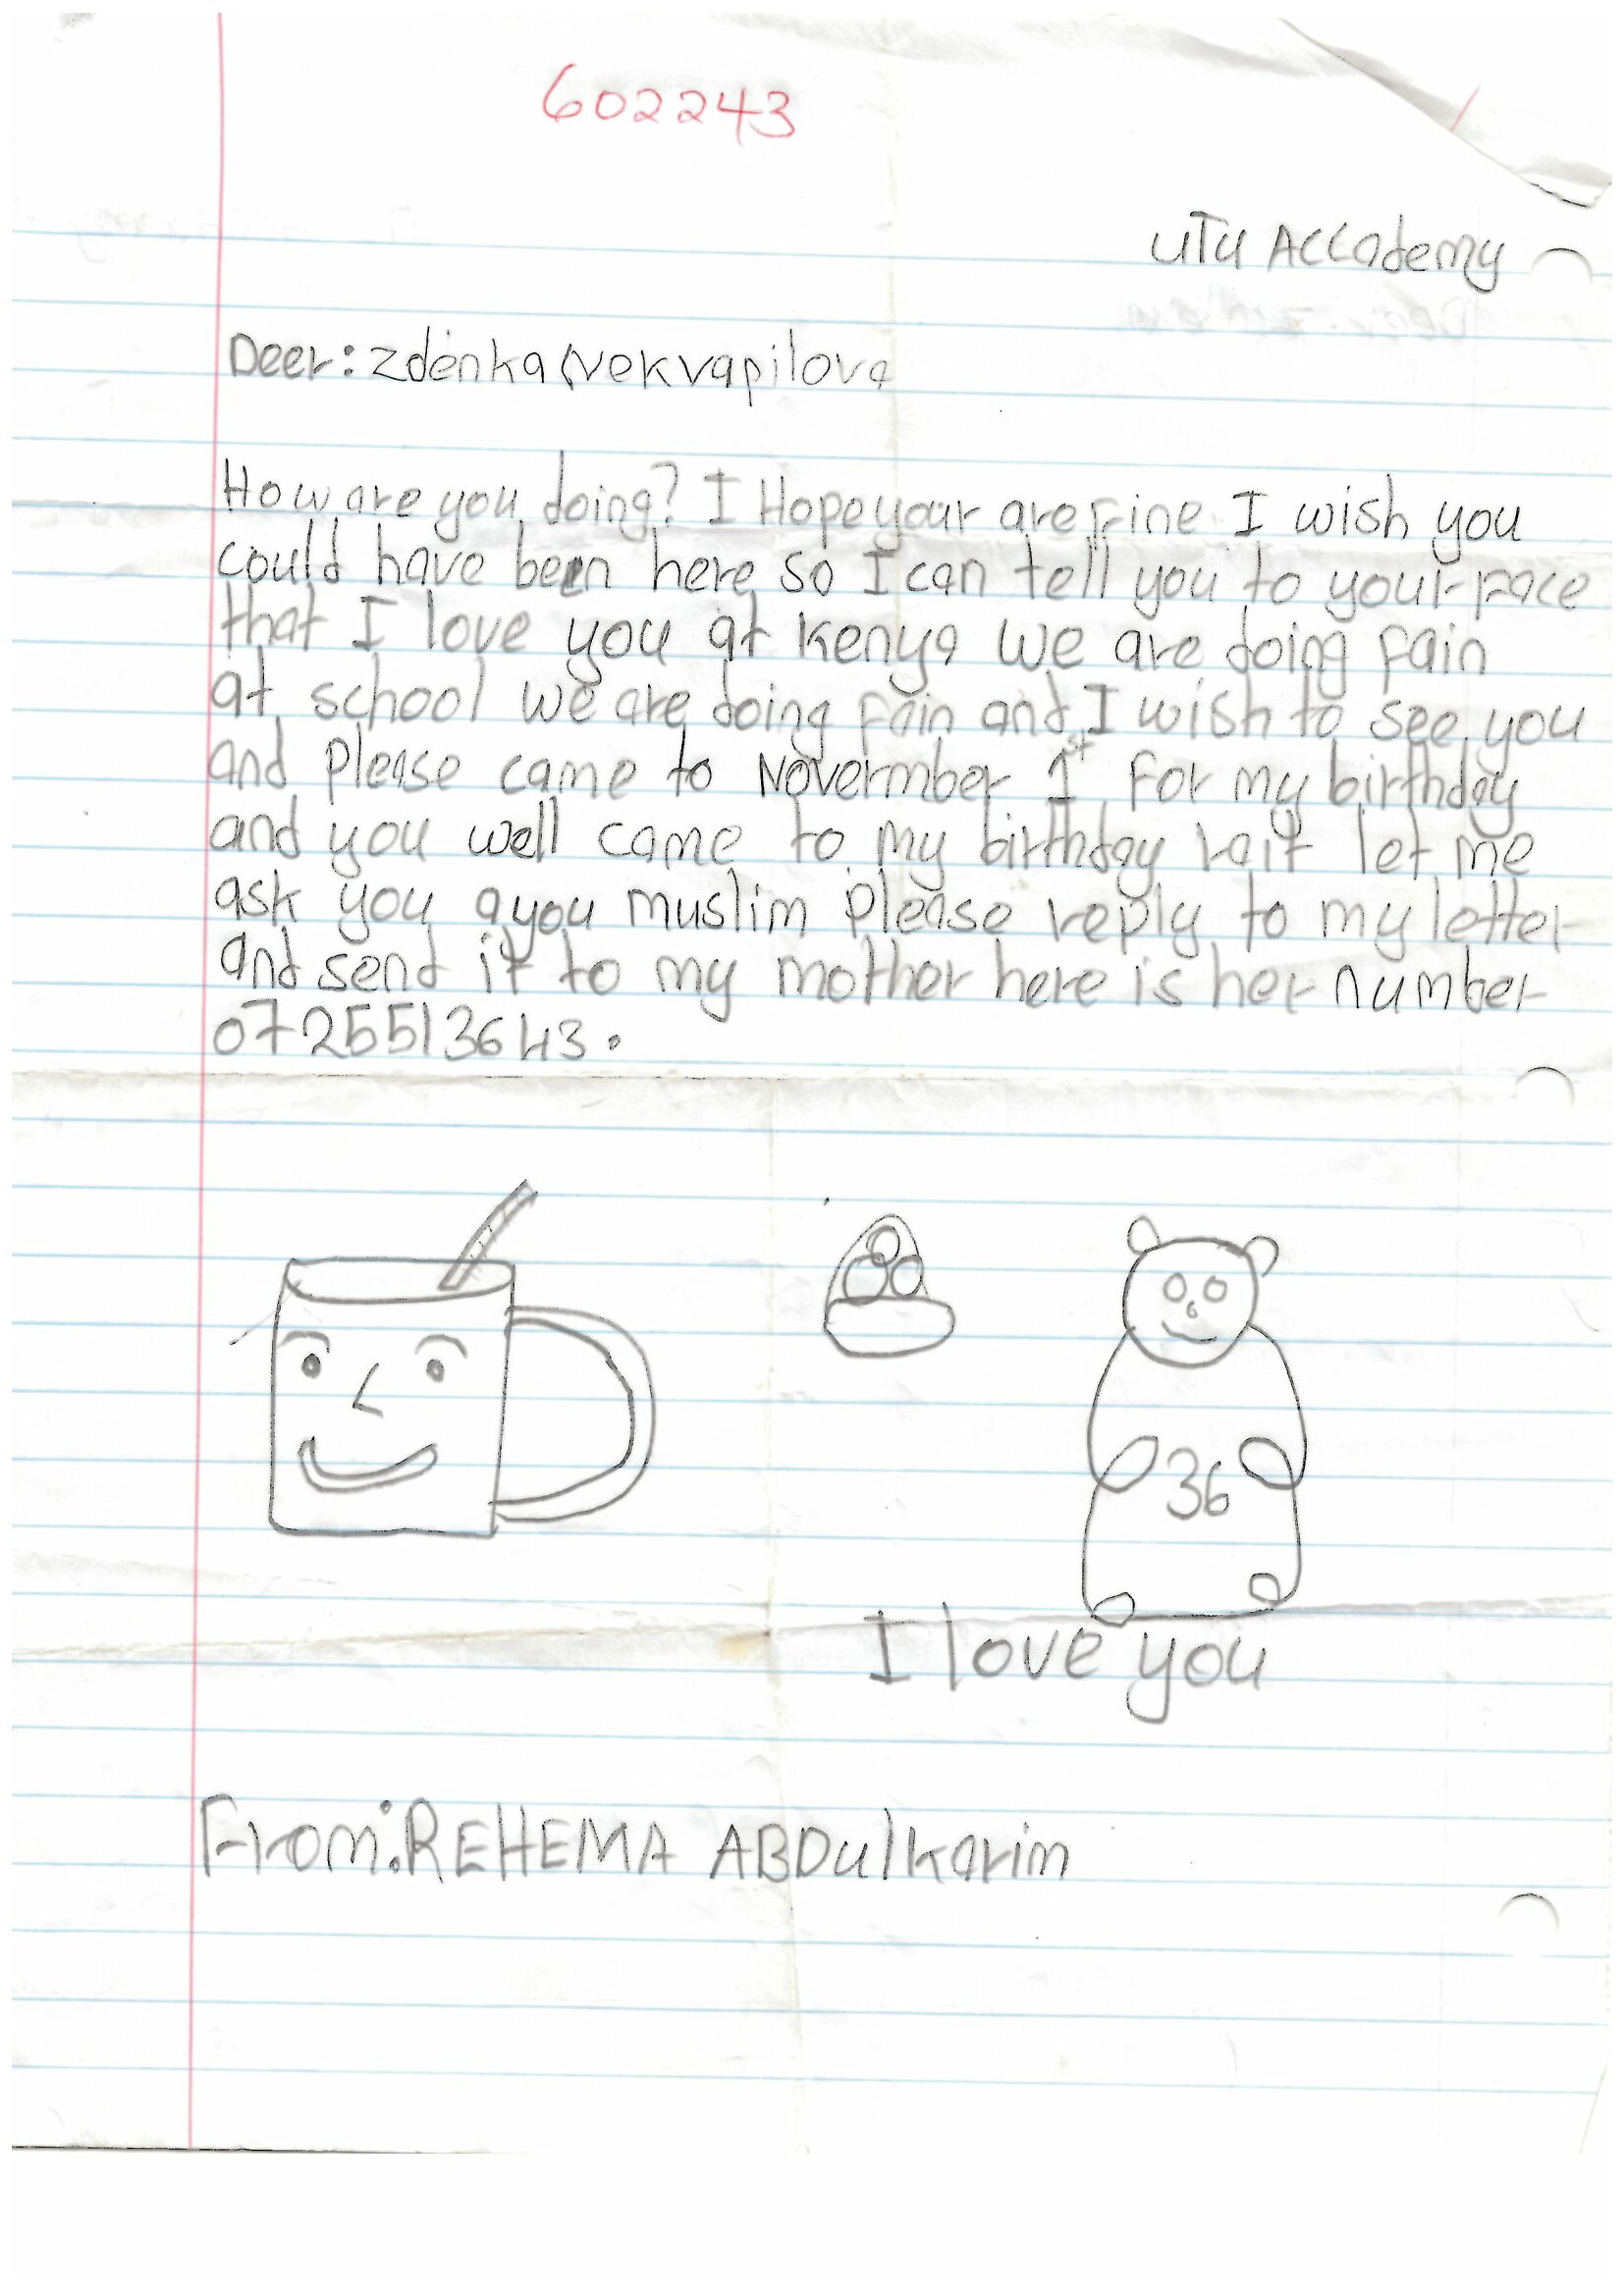 602243
UTU ACCademy
Deer: zdenka Nekvapilova
How are you doing? I Hope your are Fine I wish you
could have been here so I can tell you to your face
that I love you at kenya we are doing fain
at school we are doing fain and I wish to see you
and please came to Novermber 1st For my birthday
and you well came to my birthday rait let me
ask you a you muslim please reply to my letter
and send it to my mother here is her number
0725513643.
36
I love you
From: REHEMA ABDulkarim